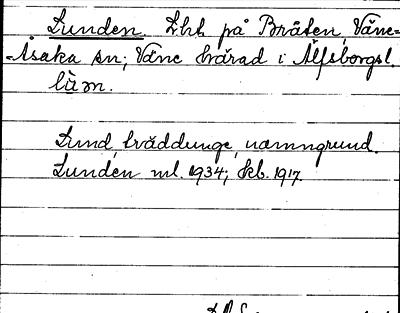 Lunden. Lht på Bråten, Väne-
-Åsaka sn; Väne härad i Älfsborgs l.
län.
Lund, träddunge, namngrund.
Lunden ml. 1934; Ekb. 1917.